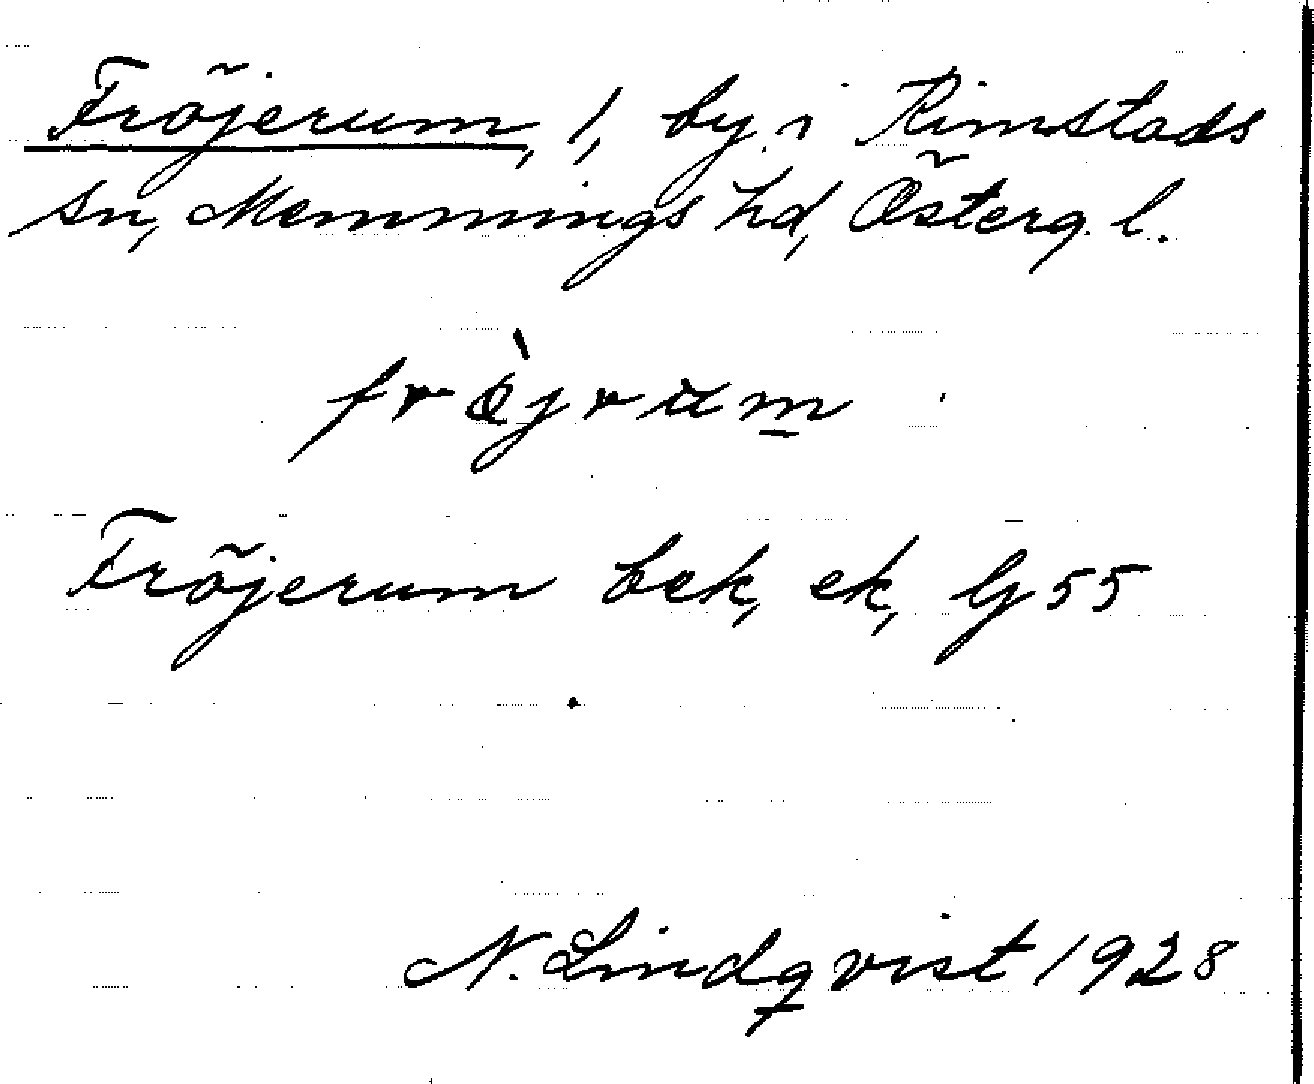 Fröjerum, 1, by i Rimstads
sn, Memmings hd, Österg. l.
frö̀jrum
Fröjerum bek, ek, G 55
N. Lindqvist 1928